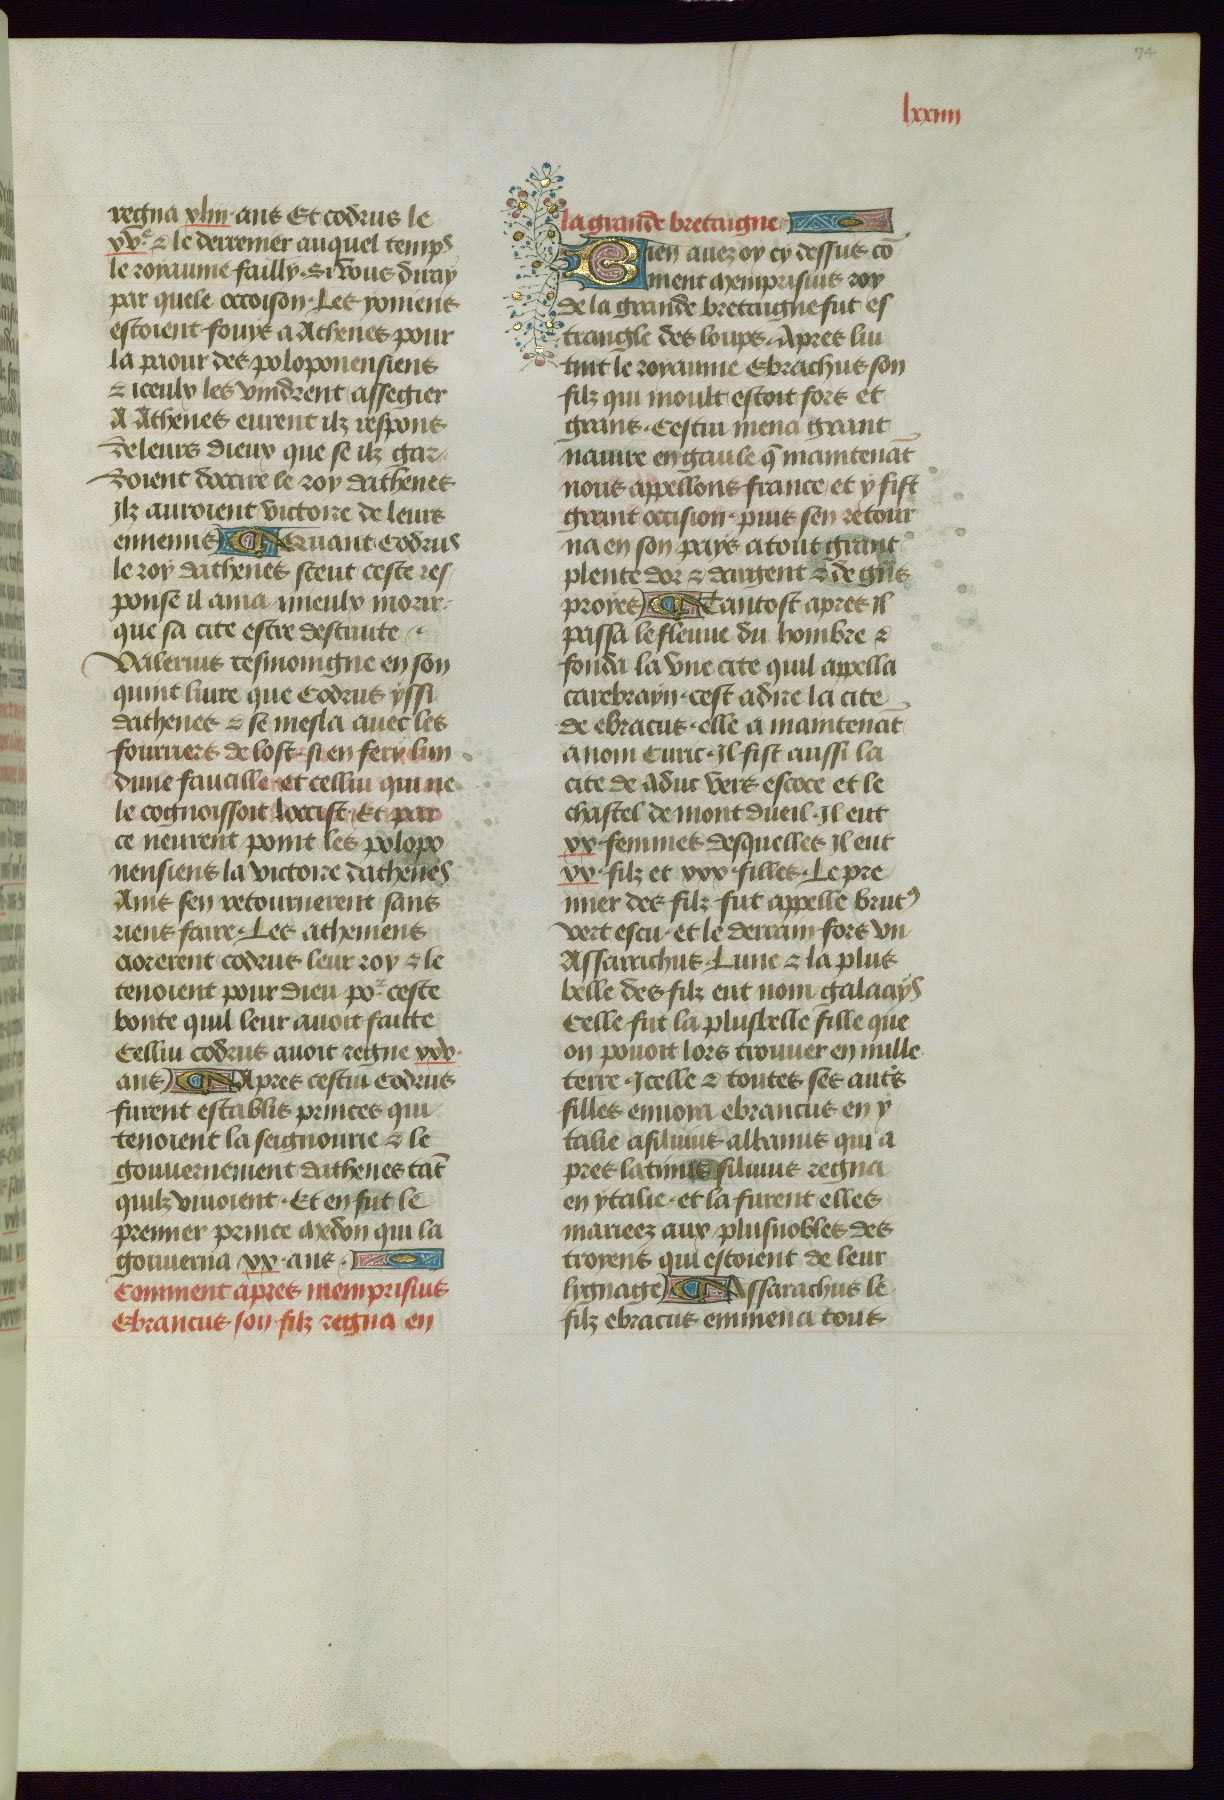 74
lxxiiii
regna xliiii ans Et codrus le
xve ⁊ le derrenier auquel temps
le royaume failly. Si vous diray
par quele occoison. Les yoniens
estoient fouys a Athenes pour
la paour des poloponensiens
⁊ iceulx les vindrent assegier
A Athenes eurent ilz respons
de leurs dieux que se ilz gar
doient doccire le roy dathenes
Ilz auroient victoire de leurs
ennemis Quant Codrus
le roy dathenes sceut ceste res
ponse il ama mieulx morir
que sa cite estre destruite
Valerius tesmoingne en son
quint liure que Codrus yssi
dathenes ⁊ se mesla auec les
fourriers de lost. si en fery lun
dune faucille. et cellui qui ne
le cognoissoit loccist. Et par
ce neurent point les polopo
nensiens la victoire dathenes
Ains sen retournerent sans
riens faire. Les atheniens
aorerent codrus leur roy ⁊ le
tenoient pour dieu por ceste
bonte quil leur auoit faitte
Cellui codrus auoit regne xxv.
ans Apres cestui Codrus
furent establis princes qui
tenoient la seignourie ⁊ le
gouuernement dathenes tāt
quilz viuoient. Et en fut le
premier prince axedon qui la
gouuerna xx. ans.
Comment apres memprisius
Ebrancus son filz regna en
la grande bretaigne
Bien auez oy cy dessus cō
ment memprisius roy
de la grande bretaigne fut es
trangle des loups. Apres lui
tint le royaume Ebrachus son
filz qui moult estoit fors et
grans. Cestui mena grant
nauire en gaule q̄ maintenāt
nous appellons france et y fist
grant occision. puis sen retour
na en son pays atout grant
plente dor ⁊ dargent ⁊ de gns
proyes Tantost apres il
passa le fleuue du hombre ⁊
fonda la vne cite quil appella
carebrayn. cest adire la cite
de ebracus. elle a maintenāt
a nom Euric. Il fist aussi la
cite de aduc vers escoce et le
chastel de mont dueil. Il eut
xx. femmes desquelles Il eut
xx. filz et xxx. filles. Le pre
mier des filz fut appelle brutꝰ
vert escu. et le derrain fors vn
Assarachus. Lune ⁊ la plus
belle des filz eut nom galaays
Celle fut la plusbelle fille que
on pouoit lors trouuer en mille
terre. Icelle ⁊ toutes ses autrs
filles enuoya ebrancus en y
talie a siluius albanus qui a
pres latinus siluius regna
en ytalie. et la furent elles
mariees aux plusnobles des
troyens qui estoient de leur
lygnage Assarachus le
filz ebracus emmena tous